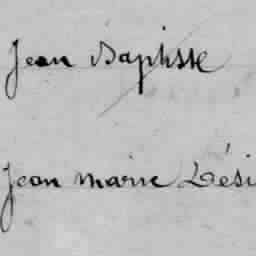 Jean Baptiste
Jean marie Dési